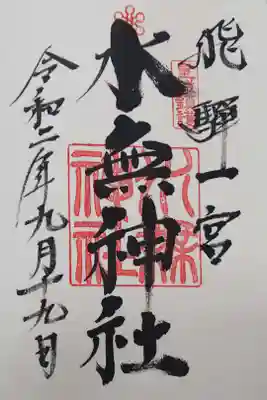 飛驒一宮
水無神社
令和二年九月十九日